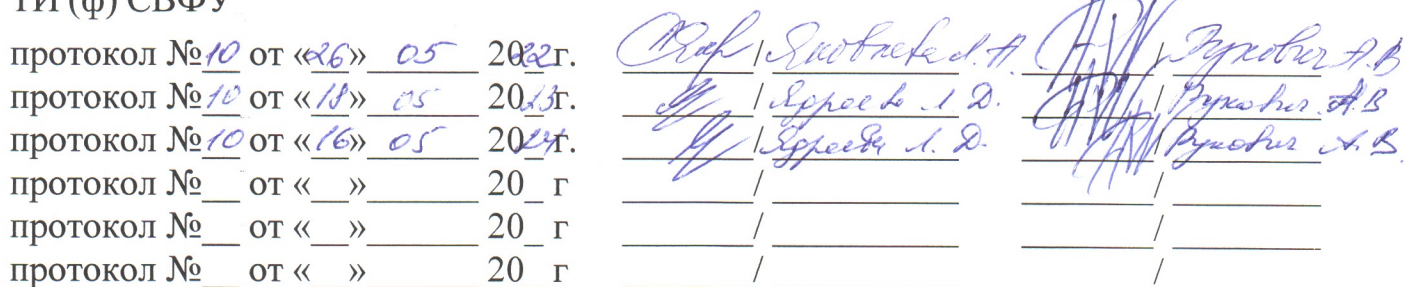 ТИ (ф) СВФУ
протокол №10 от «26» 05 2022г. / Яковлева Л.А. / Рукович А.В
протокол №10 от «18» 05 2023г. / Ядреева Л.Д. / Рукович А.В
протокол №10 от «16» 05 2024г. / Ядреева Л.Д. / Рукович А.В.
протокол №__ от «__»______ 20_ г ______/ ______ ______/ ______
протокол №__ от «__»______ 20_ г ______/ ______ ______/ ______
протокол №__ от «__»______ 20_ г / /